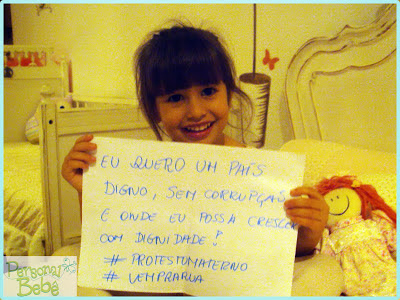 EU QUERO UM PAÍS
DIGNO, SEM CORRUPÇÃO
E ONDE EU POSSA CRESCER
COM DIGNIDADE!
# PROTESTOMATERNO
# VEMPRARUA
Personal
Bebê